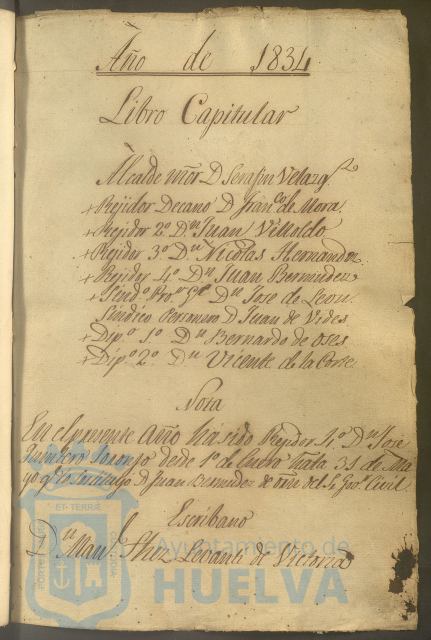 Año de 1834
Libro Capitular
Alcalde mor. D. Serafin Velazqz
+ Rejidor Decano D. Franco. de Mora.
+ Rejidor 2º Dn. Juan
+ Rejidor 3º Dn. Nicolas Hernandez
+ Rejidor 4º Dn. Juan Bermudez
+ Sindo. Pror. Gl. Dn. Jose de Leon.
Sindico Personero D. Juan de Vides
+ Dipo. 1º Dn. Bernardo de Oses
+ Dipo. 2º Dn. Vicente de la Corte
Nota
En el presente Año ha sido Rejidor 4º Dn. Jose
Quintero desde 1º de Enero hasta 31 de Ma
yo q. lo D. Juan Bermudez de del Sr. Gor. Civil
Escribano
Dn. Manl. Shez Levanti de Victoria
ET TERRÆ
Ayuntamiento de
HUELVA